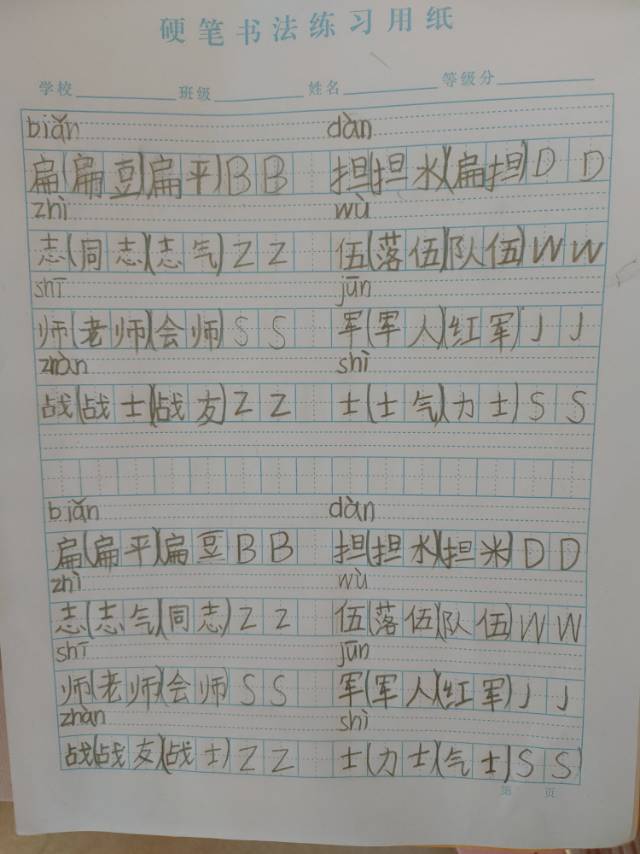 硬笔书法练习用纸
学校 班级 姓名 等级分
biǎn dàn
扁(扁豆)(扁平)B B 担(担水)(扁担)D D
zhì wù
志(同志)(志气)Z Z 伍(落伍)(队伍)W W
shī jūn
师(老师)(会师)S S 军(军人)(红军)J J
zhàn shì
战(战士)(战友)Z Z 士(士气)(力士)S S
biǎn dàn
扁(扁平)(扁豆)B B 担(担水)(担米)D D
zhì wù
志(志气)(同志)Z Z 伍(落伍)(队伍)W W
shī jūn
师(老师)(会师)S S 军(军人)(红军)J J
zhàn shì
战(战友)(战士)Z Z 士(力士)(气士)S S
第 页